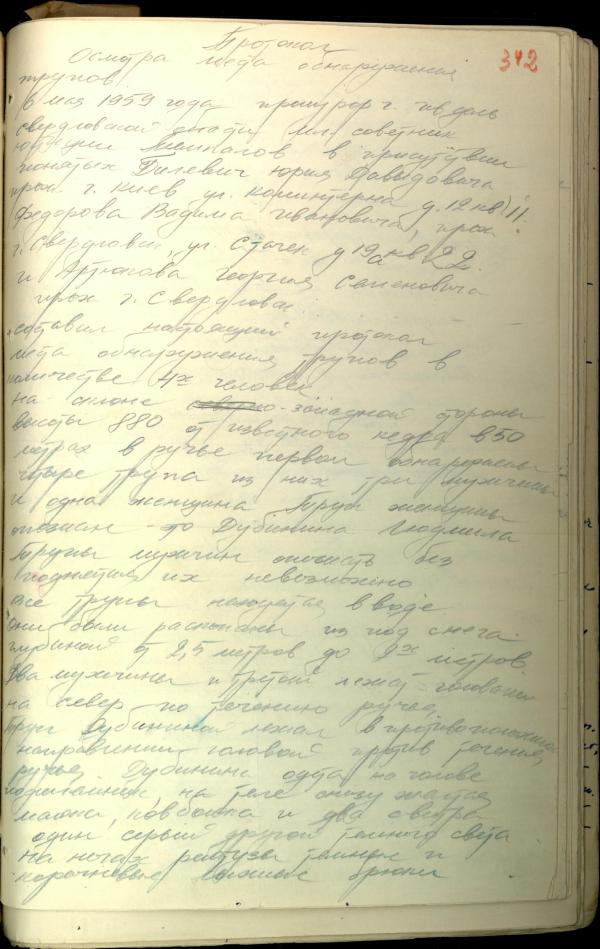 342
Протокол
Осмотра места обнаружения
трупов
6 мая 1959 года прокурор г. Ивдель
свердловской области мл. советник
юстиции Темпалов в присутствии
понятых Билевич Юрия Давыдовича
прож. г. Киев ул. Коминтерна д. 12 кв 11.
Федорова Вадима Ивановича, прож
г. Свердловск, ул. Стачек д 19а кв 22
и Артюкова Георгия Семеновича
прож г. Свердловск
составил настоящий протокол
места обнаружения трупов в
количестве 4х человек
На склоне западной стороны
высоты 880 от известного кедра в 50
метрах в ручье первом обнаружены
четыре трупа из них три мужчины
и одна женщина. Труп женщины
опознан - это Дубинина Людмила
Трупы мужчин опознать без
поднятия их невозможно
Все трупы находятся в воде.
Они были раскопаны из под снега
глубиной от 2,5 метров до 2х метров
Два мужчины и третий лежат головами
на север по течению ручья,
труп Дубининой лежал в противоположном
направлении головой против течения
ручья. Дубинина одета на голове
подшлемник на теле снизу желтая
майка, ковбойка и два свитра
один серый другой темного света
На ногах рейтузы темные и
коричневые лыжные брюки